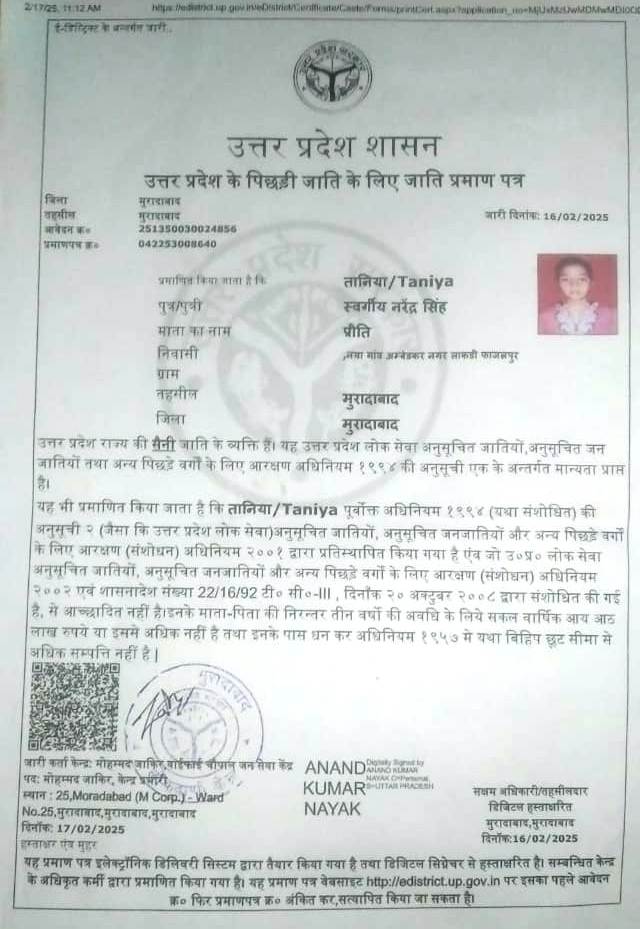 2/17/25, 11:12 AM https://edistrict.up.gov.in/eDistrict/Certificate/Caste/Forms/printCert.aspx?application_no=
ई-डिस्ट्रिक्ट के अन्तर्गत जारी..
उत्तर प्रदेश शासन
उत्तर प्रदेश के पिछड़ी जाति के लिए जाति प्रमाण पत्र
जिला मुरादाबाद
तहसील मुरादाबाद जारी दिनांक: 16/02/2025
आवेदन क्र० 251350030024856
प्रमाणपत्र क्र० 042253008640
प्रमाणित किया जाता है कि तानिया/Taniya
पुत्र/पुत्री स्वर्गीय नरेंद्र सिंह
माता का नाम प्रीति
निवासी ,नया गांव अम्बेडकर नगर लाकडी फाजलपुर
ग्राम
तहसील मुरादाबाद
जिला मुरादाबाद
उत्तर प्रदेश राज्य की सैनी जाति के व्यक्ति हैं। यह उत्तर प्रदेश लोक सेवा अनुसूचित जातियों,अनुसूचित जन
जातियों तथा अन्य पिछड़े वर्गों के लिए आरक्षण अधिनियम १९९४ की अनुसूची एक के अन्तर्गत मान्यता प्राप्त
है।
यह भी प्रमाणित किया जाता है कि तानिया/Taniya पूर्वोक्त अधिनियम १९९४ (यथा संशोधित) की
अनुसूची २ (जैसा कि उत्तर प्रदेश लोक सेवा)अनुसूचित जातियों, अनुसूचित जनजातियों और अन्य पिछड़े वर्गों
के लिए आरक्षण (संशोधन) अधिनियम २००१ द्वारा प्रतिस्थापित किया गया है एंव जो उ०प्र० लोक सेवा
अनुसूचित जातियों, अनुसूचित जनजातियों और अन्य पिछड़े वर्गों के लिए आरक्षण (संशोधन) अधिनियम
२००२ एवं शासनादेश संख्या 22/16/92 टी० सी०-III , दिनाँक २० अक्टूबर २००८ द्वारा संशोधित की गई
है, से आच्छादित नहीं है।इनके माता-पिता की निरन्तर तीन वर्षो की अवधि के लिये सकल वार्षिक आय आठ
लाख रुपये या इससे अधिक नहीं है तथा इनके पास धन कर अधिनियम १९५७ मे यथा विहिप छूट सीमा से
अधिक सम्पत्ति नहीं है |
मुरादाबाद
जारी कर्ता केन्द्र: मोहम्मद जाकिर,वाईफाई चौपाल जन सेवा केंद्र
पद: मोहम्मद जाकिर, केन्द्र प्रभारी
स्थान : 25,Moradabad (M Corp.) - Ward
No.25,मुरादाबाद,मुरादाबाद,मुरादाबाद
दिनाँक: 17/02/2025
हस्ताक्षर एंव मुहर
ANAND
KUMAR
NAYAK
Digitally Signed by
ANAND KUMAR
NAYAK C=Personal,
S=UTTAR PRADESH
सक्षम अधिकारी/तहसीलदार
डिजिटल हस्ताक्षरित
मुरादाबाद,मुरादाबाद
दिनाँक:16/02/2025
यह प्रमाण पत्र इलेक्ट्रॉनिक डिलिवरी सिस्टम द्वारा तैयार किया गया है तथा डिजिटल सिग्नेचर से हस्ताक्षरित है। सम्बन्धित केन्द्र
के अधिकृत कर्मी द्वारा प्रमाणित किया गया है। यह प्रमाण पत्र वेबसाइट http://edistrict.up.gov.in पर इसका पहले आवेदन
क्र० फिर प्रमाणपत्र क्र० अंकित कर,सत्यापित किया जा सकता है।